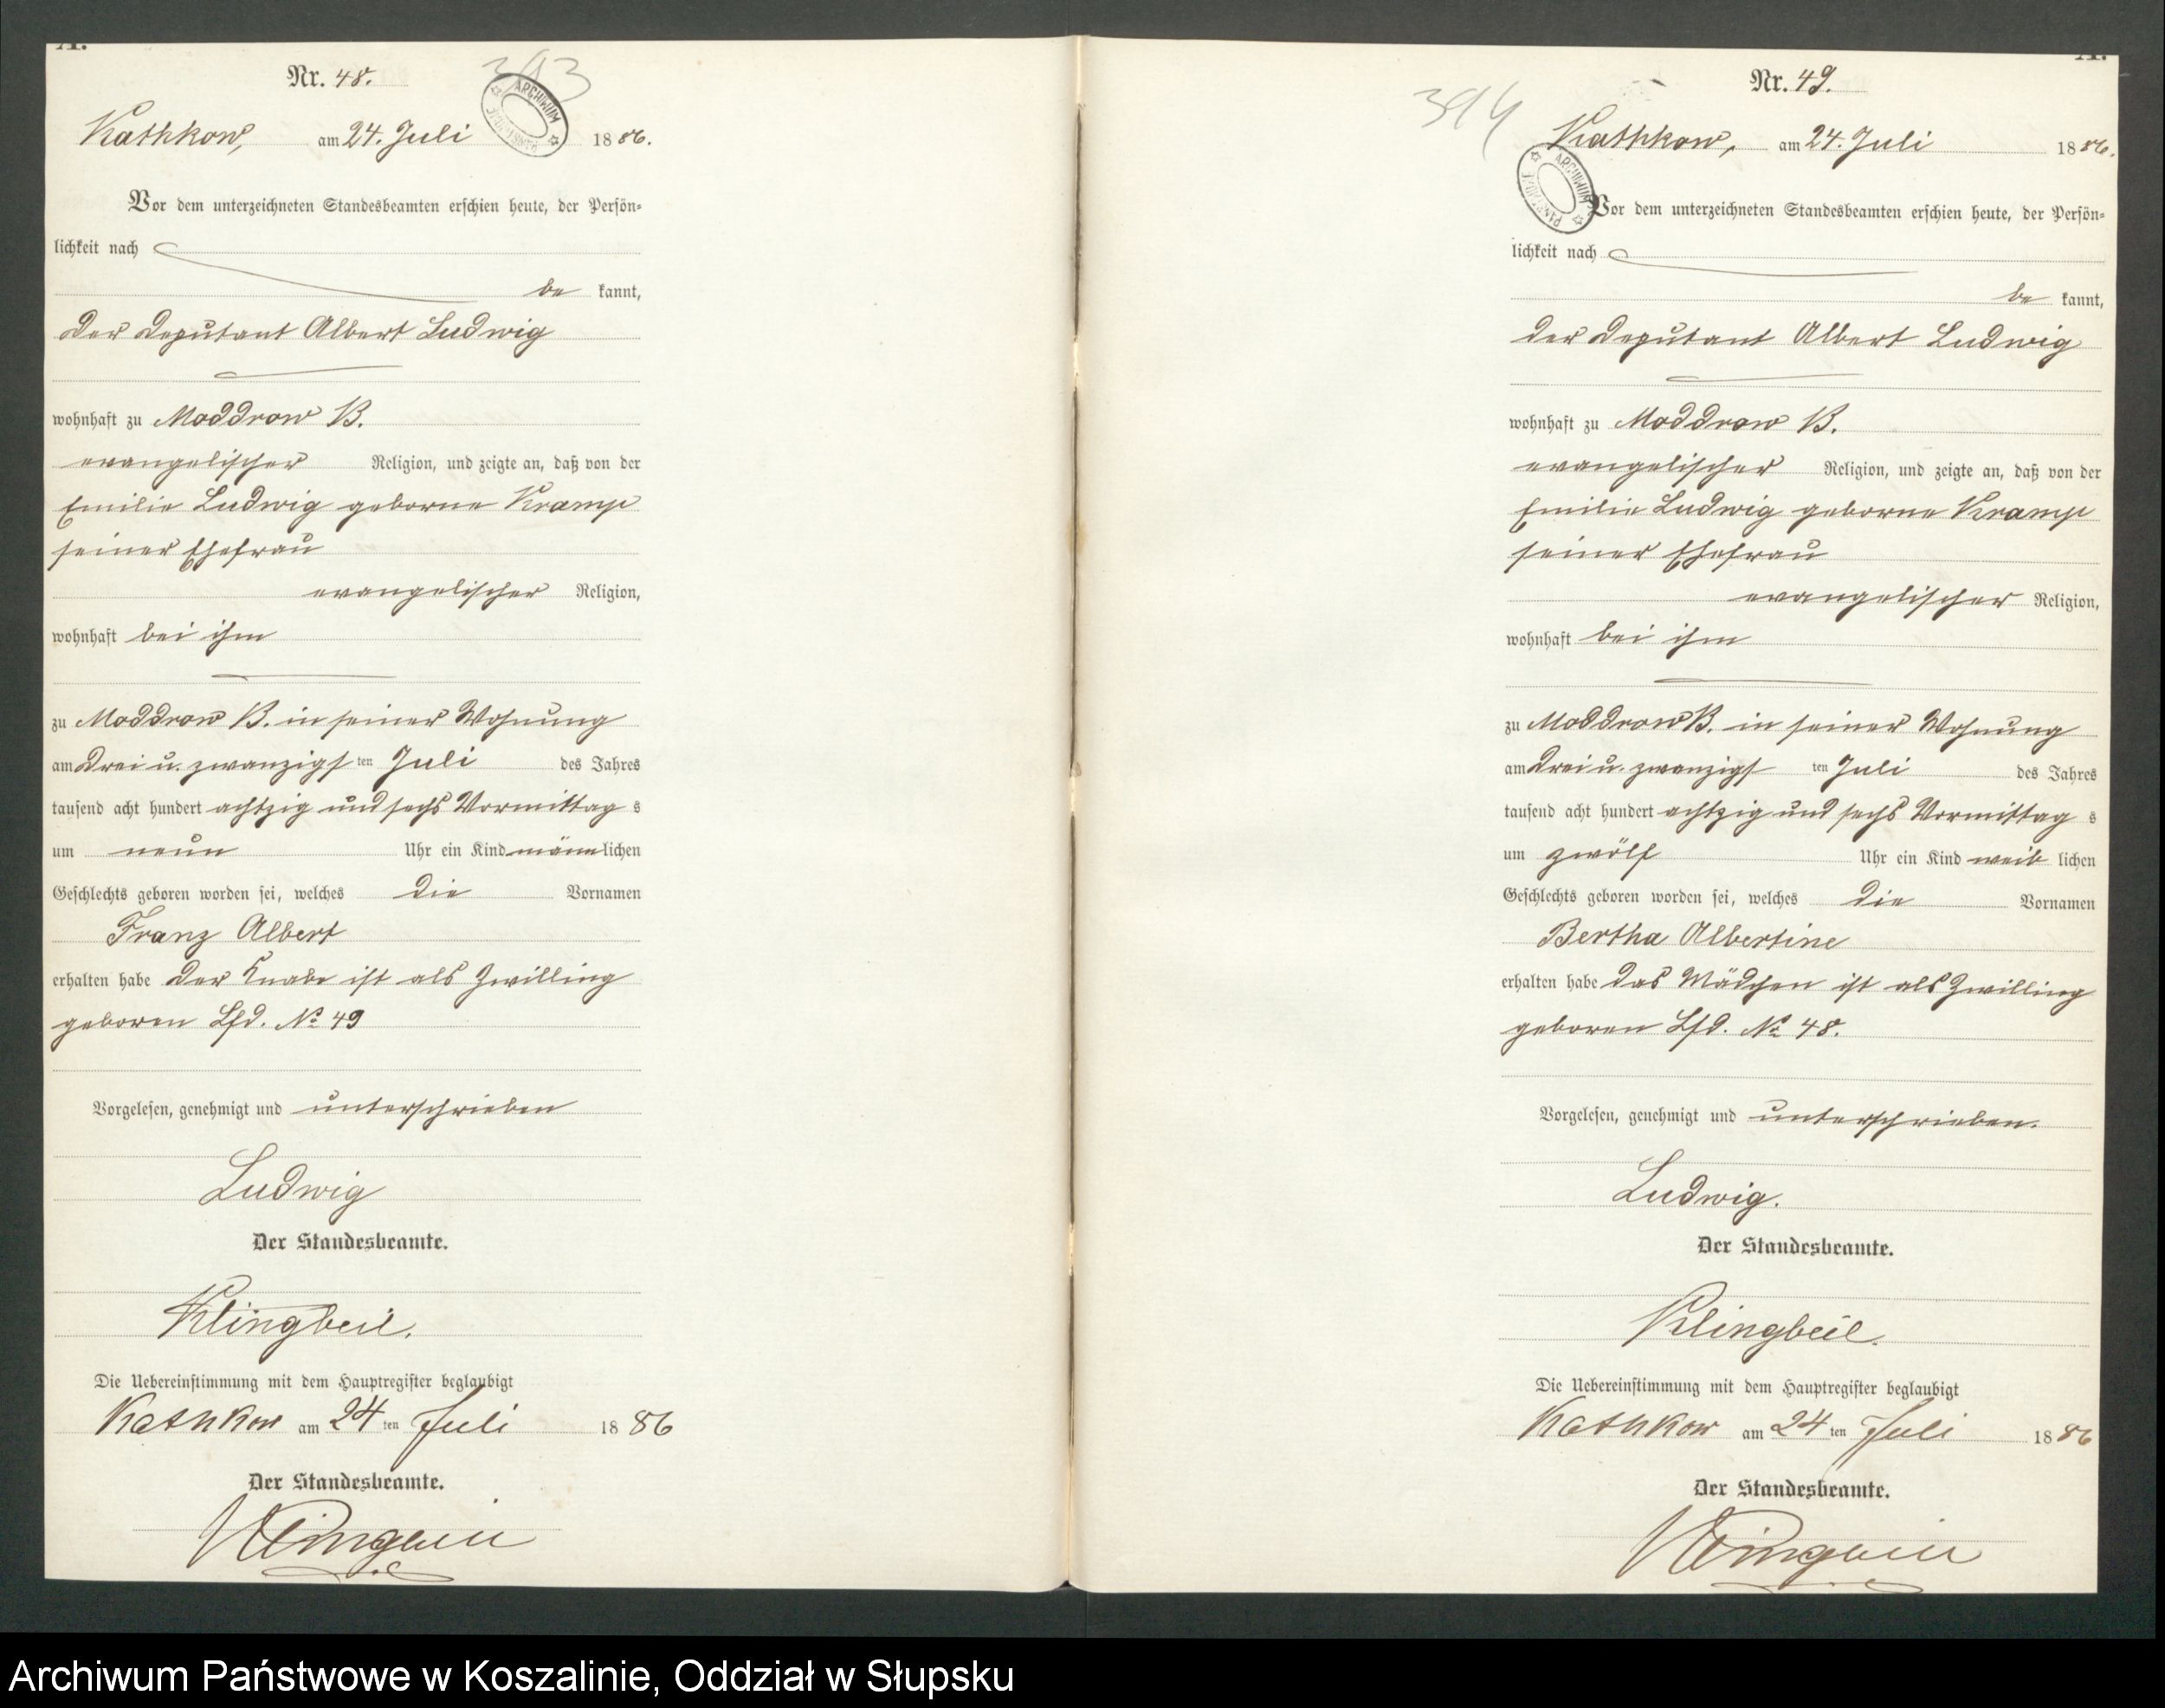 A.
Nr. 48.
313
ARCHIWUM
Kathkow, am 24. Juli 1886.
Vor dem unterzeichneten Standesbeamten erschien heute, der Persön-
lichkeit nach
be kannt,
der Deputant Albert Ludwig
wohnhaft zu Moddrow B.
evangelischer Religion, und zeigte an, daß von der
Emilie Ludwig geborne Kramp
seiner Ehefrau
evangelischer Religion,
wohnhaft bei ihm
zu Moddrow B. in seiner Wohnung
am drei u. zwanzigsten Juli des Jahres
tausend acht hundert achtzig und sechs Vormittags
um neun Uhr ein Kind männlichen
Geschlechts geboren worden sei, welches die Vornamen
Franz Albert
erhalten habe der Knabe ist als Zwilling
geboren Lfd. No 49
Vorgelesen, genehmigt und unterschrieben
Ludwig
Der Standesbeamte.
Klingbeil.
Die Uebereinstimmung mit dem Hauptregister beglaubigt
Kathkow am 24ten Juli 1886
Der Standesbeamte.
Klingbeil
A.
Nr. 49.
314
Kathkow, am 24. Juli 1886.
ARCHIWUM
Vor dem unterzeichneten Standesbeamten erschien heute, der Persön-
lichkeit nach
be kannt,
der Deputant Albert Ludwig
wohnhaft zu Moddrow B.
evangelischer Religion, und zeigte an, daß von der
Emilie Ludwig geborne Kramp
seiner Ehefrau
evangelischer Religion,
wohnhaft bei ihm
zu Moddrow B. in seiner Wohnung
am drei u. zwanzigsten Juli des Jahres
tausend acht hundert achtzig und sechs Vormittags
um zwölf Uhr ein Kind weiblichen
Geschlechts geboren worden sei, welches die Vornamen
Bertha Albertine
erhalten habe das Mädchen ist als Zwilling
geboren Lfd. No 48.
Vorgelesen, genehmigt und unterschrieben.
Ludwig.
Der Standesbeamte.
Klingbeil.
Die Uebereinstimmung mit dem Hauptregister beglaubigt
Kathkow am 24ten Juli 1886
Der Standesbeamte.
Klingbeil
Archiwum Państwowe w Koszalinie, Oddział w Słupsku